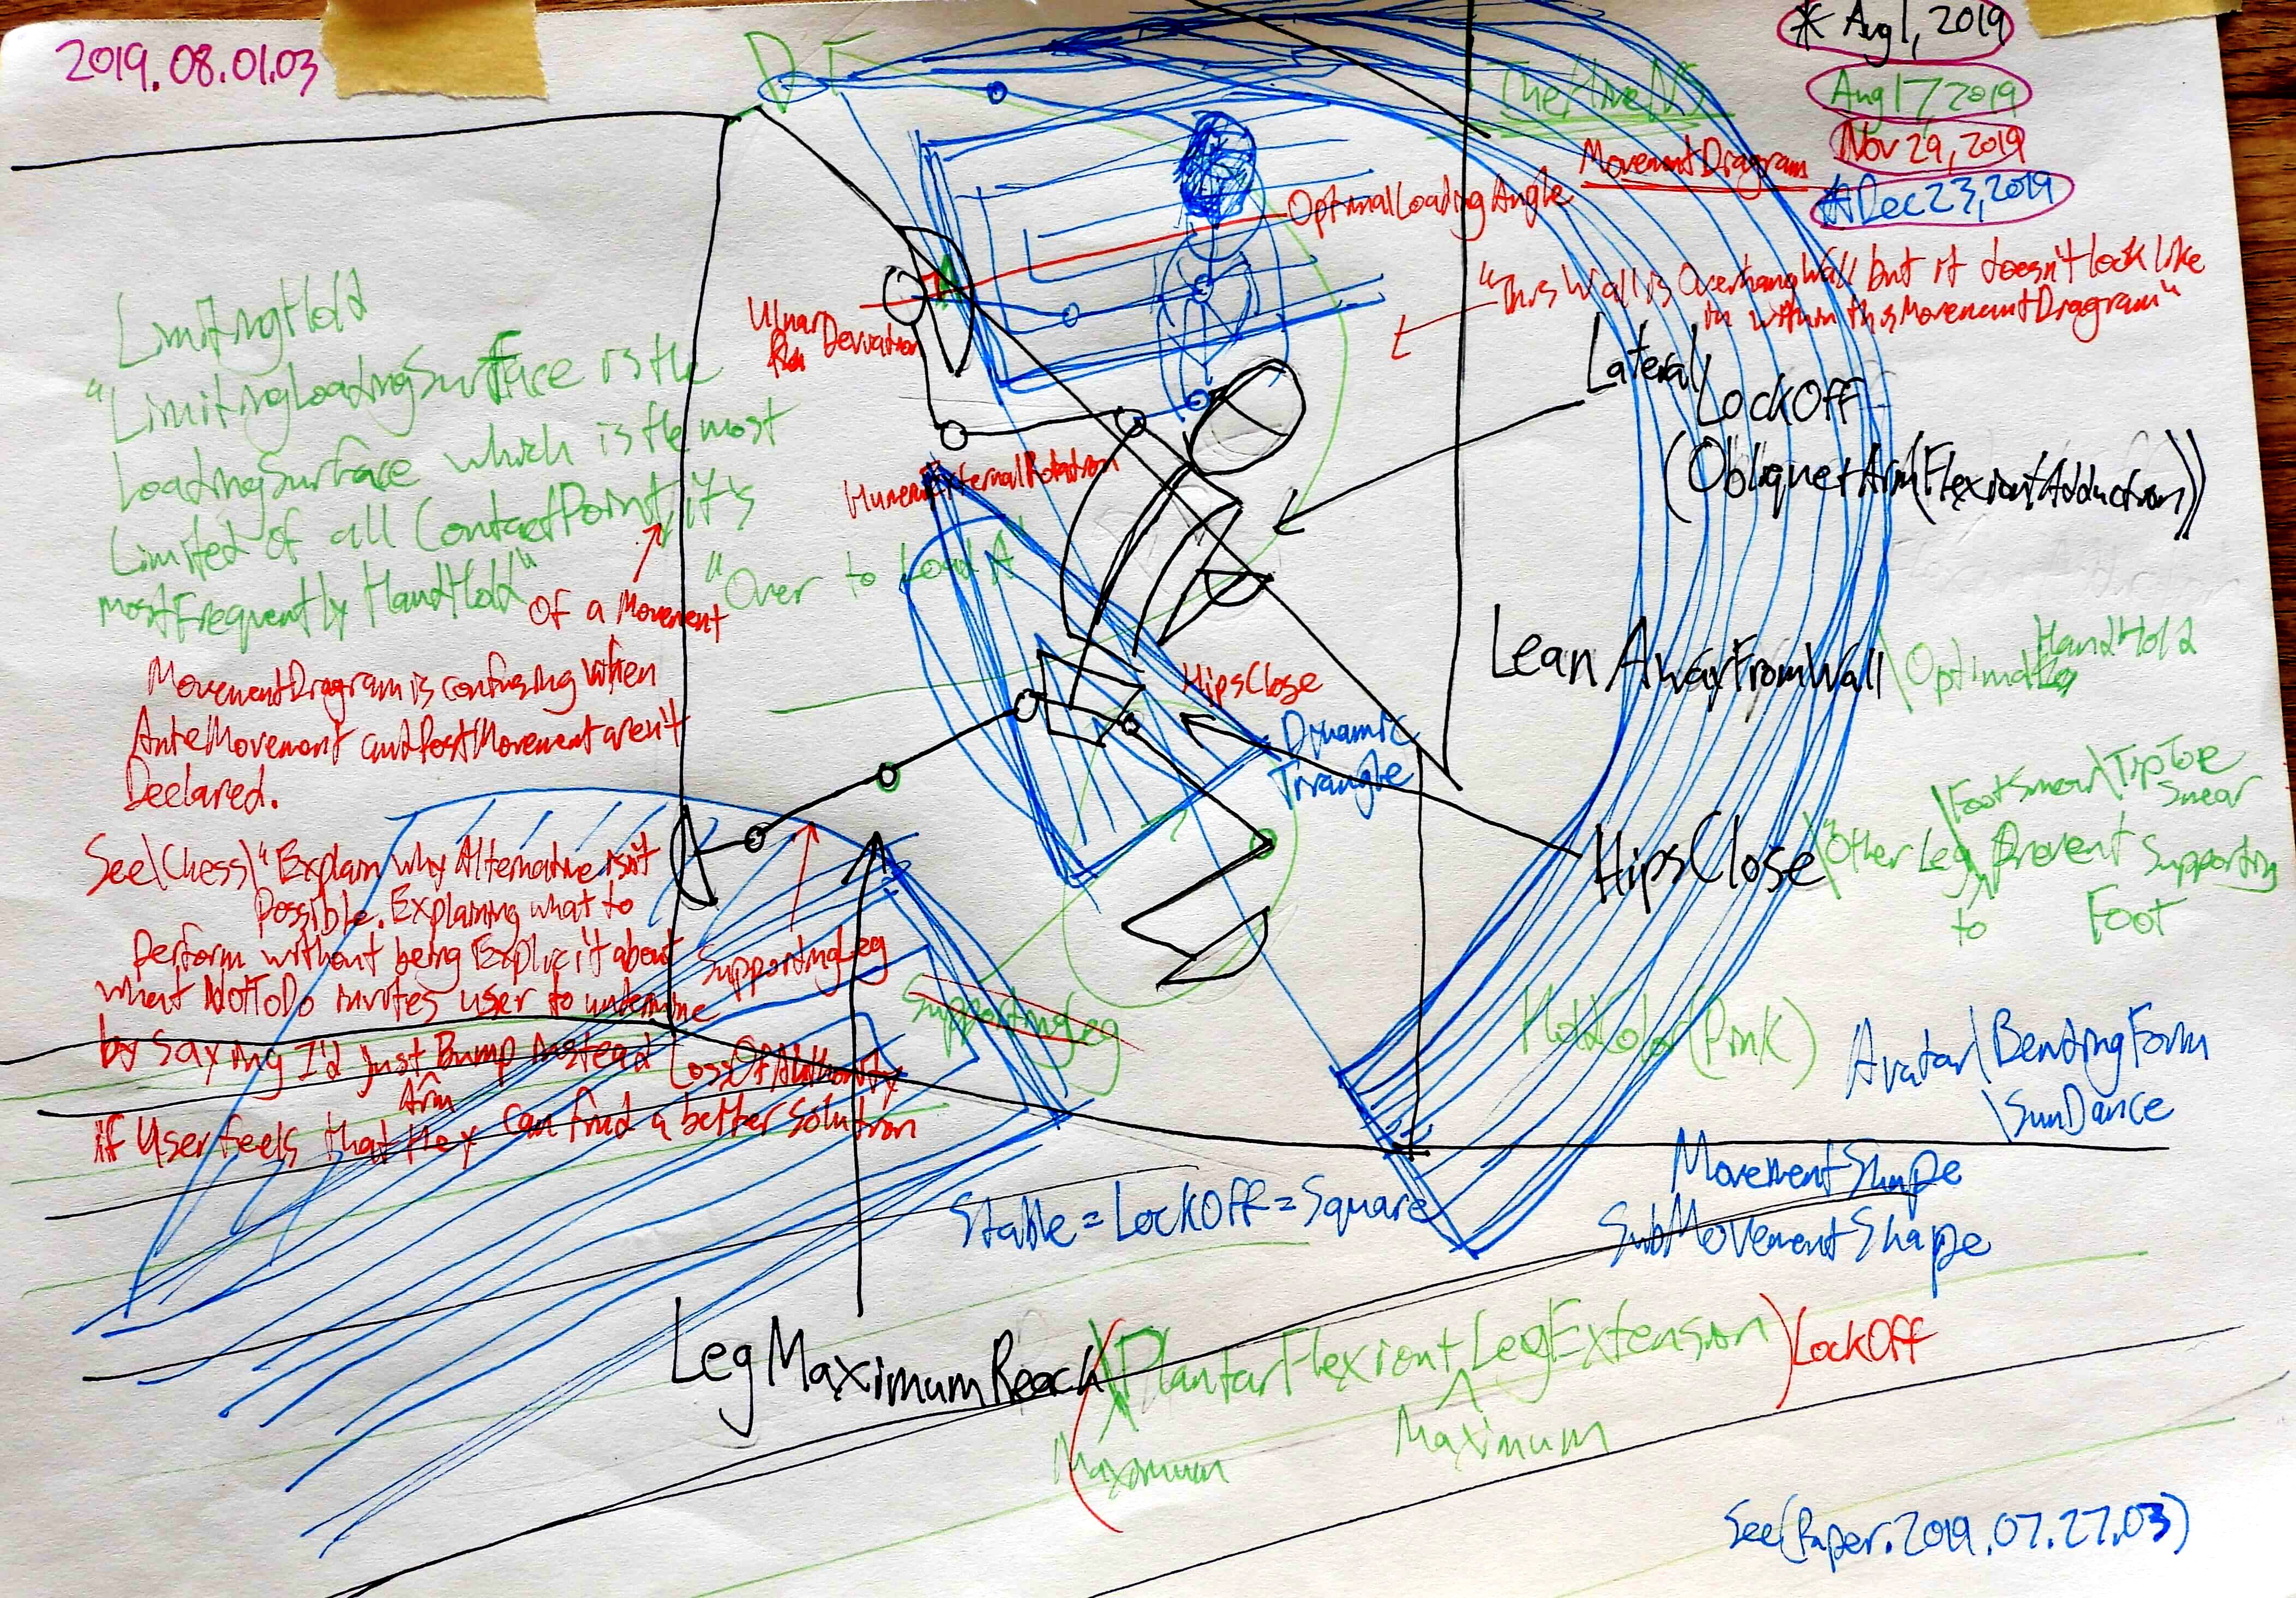 2019.08.01.03
* Aug 1, 2019
Aug 17, 2019
Nov 29, 2019
Dec 23, 2019
TheHiveNS
MovementDiagram
OptimalLoadingAngle
"This Wall is OverhangWall but it doesn't look like
it within this MovementDiagram"
Ulnar
Deviation
LimitingHold
"LimitingLoadingSurface is the
LoadingSurface which is the most
Limited of all ContactPoint, it's
most Frequently HandHold"
Of a Movement
"Over to Load A
Lateral\LockOff
(Oblique+Arm(Flexion+Adduction))
HumeralExternalRotation
MovementDiagram is confusing when
AnteMovement and PostMovement aren't
Declared.
LeanAwayFromWall
HandHold
HipsClose
Dynamic
Triangle
\FootSmear\TipToe
Smear
HipsClose
\"Other Leg Prevent Supporting
to Foot
See\Chess\"Explain why Alternative isn't
Possible. Explaining what to
Perform without being Explicit about
what NotToDo invites user to undermine
by saying I'd just Bump instead LossOfAuthority
Arm
if User feels that they can find a better solution
SupportingLeg
SupportingLeg
HoldColor(Pink)
Avatar\BendingForm
\SunDance
MovementShape
SubMovementShape
Stable = LockOff = Square
LegMaximumReach
(\PlantarFlexion+LegExtension)LockOff
Maximum
Maximum
See(Paper.2019.07.27.03)